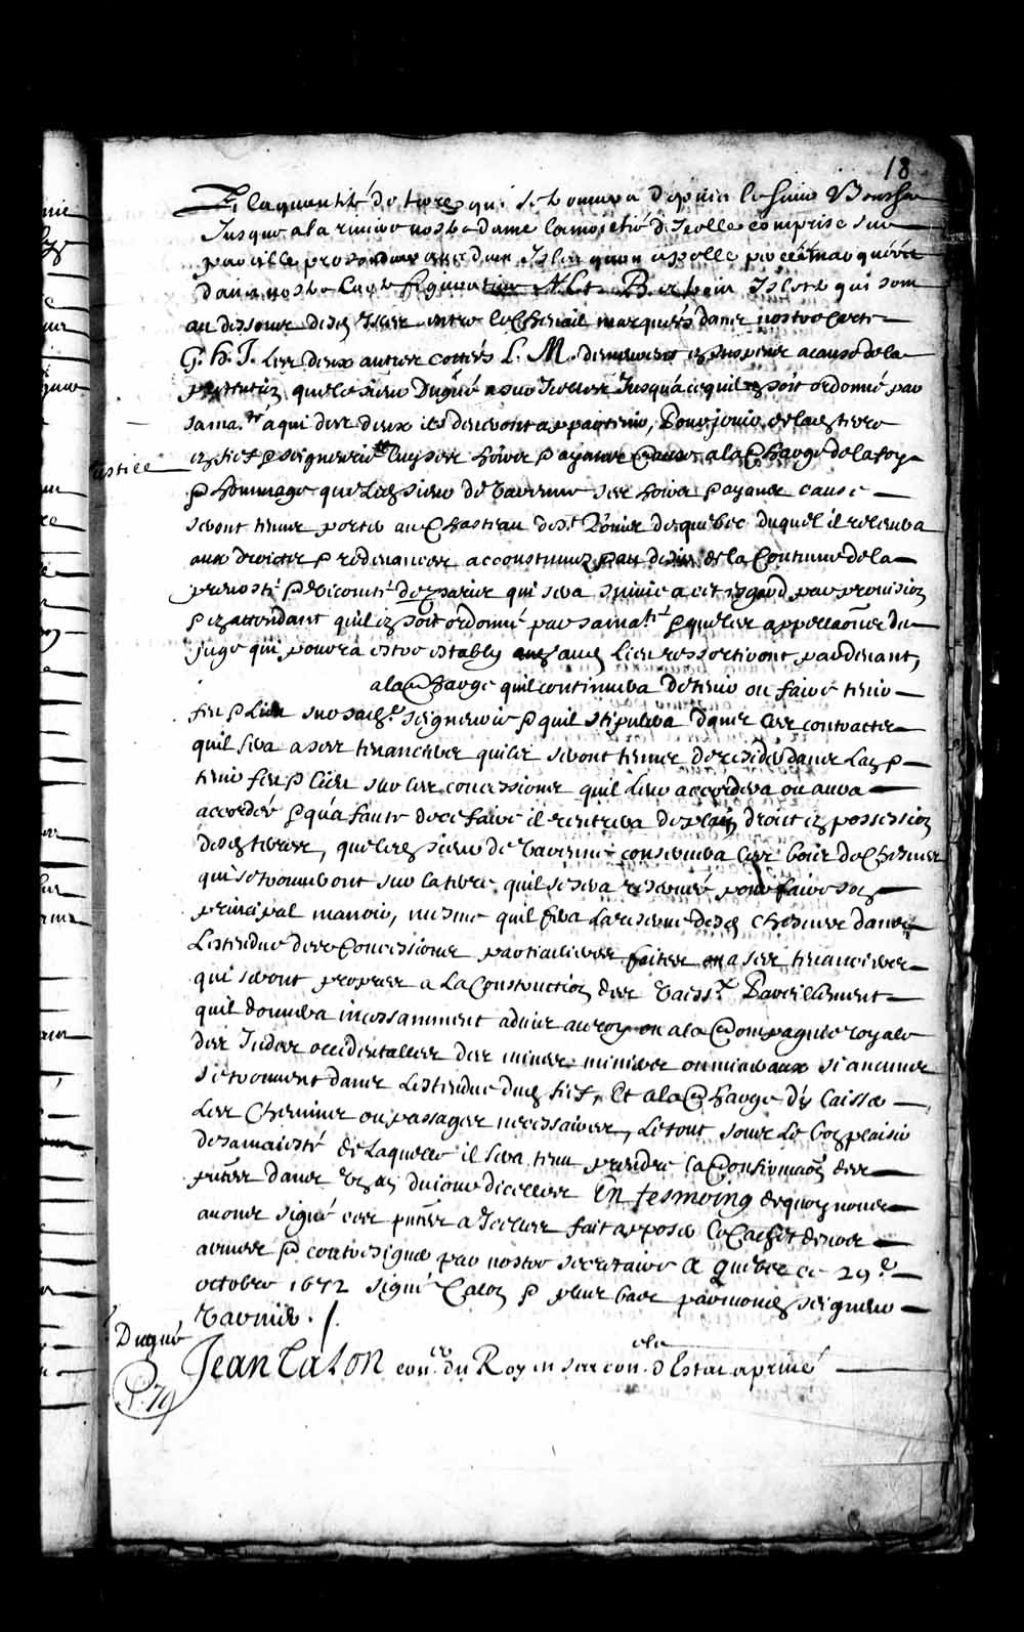 18
la quantité de terres qui se trouvera depuis le sieur Boucher
Jusque a la riviere nostre dame la moitié d'Icelle comprise sur
pareille profondeur avec d'un Islet quon apelle
dans nostre Carte figurative N. L. B. Islets qui sont
au dessous desd. Isles entre le Chenail marquées dans nostre Carte
G. H. I. les deux autres cottées L. M. demeurent en suspens a cause de la
pretention que le sieur Dugué a sur Icelles Jusqu'a ce quil en soit ordonné par
sa ma.té a qui des deux ils devront appartenir, Pour jouir de lad. terre
Justice
en fief & seigneurie luy ses hoirs & ayans cause a la Charge de la foy
& hommage que led. sieur de Varenne ses hoirs & ayans cause
seront tenus porter au Chasteau de S.t Louis de quebec duquel il relevera
aux droicts & redevances accoustumez & au desir de la Coutume de la
prevosté & vicomté de paris qui sera suivie a cet esgard par provision
& en attendant quil en soit ordonné par sa ma.té & que les appellaõns du
juge qui pourra estre estably aud. lieu ressortiront pardevant,
a la Charge quil continuera de tenir ou faire tenir
feu & Lieu sur sad.e seigneurie & quil stipulera dans les contracts
quil fera a ses tenanciers quils seront tenus de resider dans l'an &
tenir feu & lieu sur les concessions quil leur accordera ou aura
accordés & qu'a faute de ce faire il rentrera de plain droict en possession
desd. terres, que led. sieur de Varenne conservera les bois de Chesnes
qui se trouveront sur la terre quil se sera reservée pour faire son
principal manoir, mesme quil fera la reserve desd. Chesnes dans
L'estendue des Concessions particulieres faites a ses tenanciers
qui seront propres a La Construction des Vaiss.x Pareillement
quil donnera incessamment advis au roy ou a la Compagnie royale
des Indes occidentalles des mines minieres ou mineraux si aucunes
se trouvent dans L'estendue dud. fief, Et a la Charge d'y laisser
Les Chemins ou passages necessaires, Le tout sous Le bon plaisir
de sa majesté de Laquelle il sera tenu prendre la Confirmaõn des
pñtes dans un an du jour d'icelles En tesmoing de quoy nous
avons signé ces pñtes a Icelles fait apposer le Cachet de nos
armes & contresigner par nostre secretaire A Quebec ce 29.e
octobre 1672 signé Talon & plus bas par monseigneur
Varnier. /.
Dugué
Jean Talon con.er du Roy en ses con. d'Estat a privé
P. 79